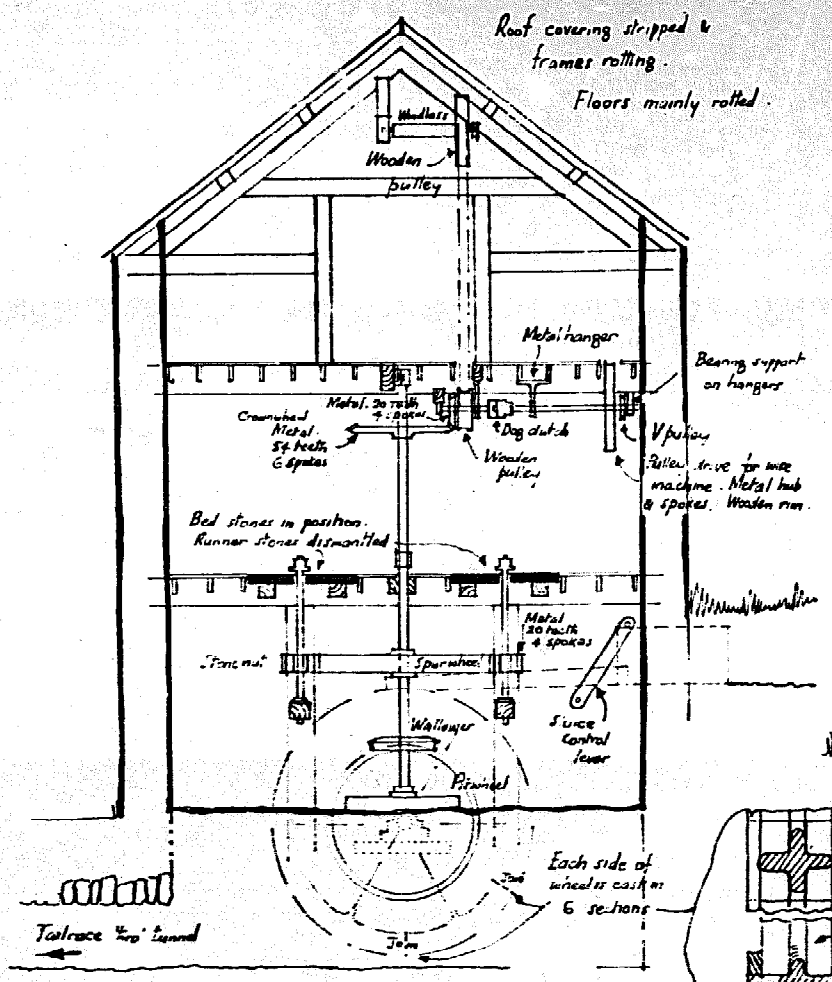 Roof covering stripped &
frames rotting.
Floors mainly rotted.
Windlass
Wooden
pulley
Metal hanger
Bearing support
on hangers
Metal. 20 teeth
4 spokes
Crownwheel
Metal.
54 teeth
6 spokes
Dog clutch
V pulley
Wooden
pulley
Pulley drive for wire
machine. Metal hub
& spokes. Wooden rim.
Bed stones in position.
Runner stones dismantled
Metal
20 teeth
4 spokes
Stone nut
Spurwheel
Wallower
Sluice
control
lever
Pitwheel
Each side of
wheel is cast in
6 sections
Join
Join
Tailrace tunnel